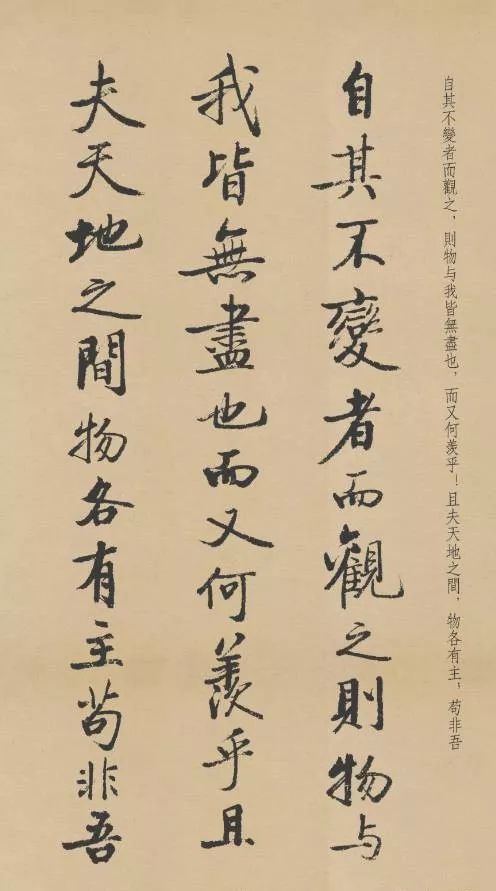 自其不變者而觀之，則物与我皆無盡也，而又何羨乎！且夫天地之間，物各有主，苟非吾
自其不變者而觀之則物与
我皆無盡也而又何羨乎且
夫天地之間物各有主苟非吾